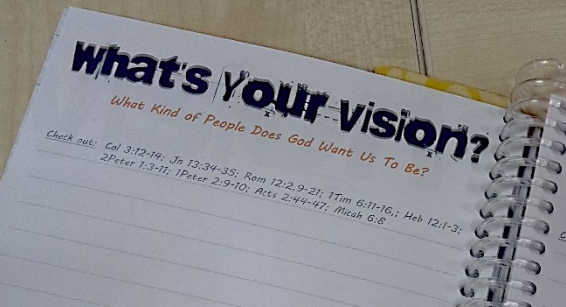 What's Your Vision?
What Kind of People Does God Want Us To Be?
Check out: Col 3:12-14; Jn 13:34-35; Rom 12:2,9-21; 1Tim 6:11-16,; Heb 12:1-3;
2Peter 1:3-11; 1Peter 2:9-10; Acts 2:44-47; Micah 6:8